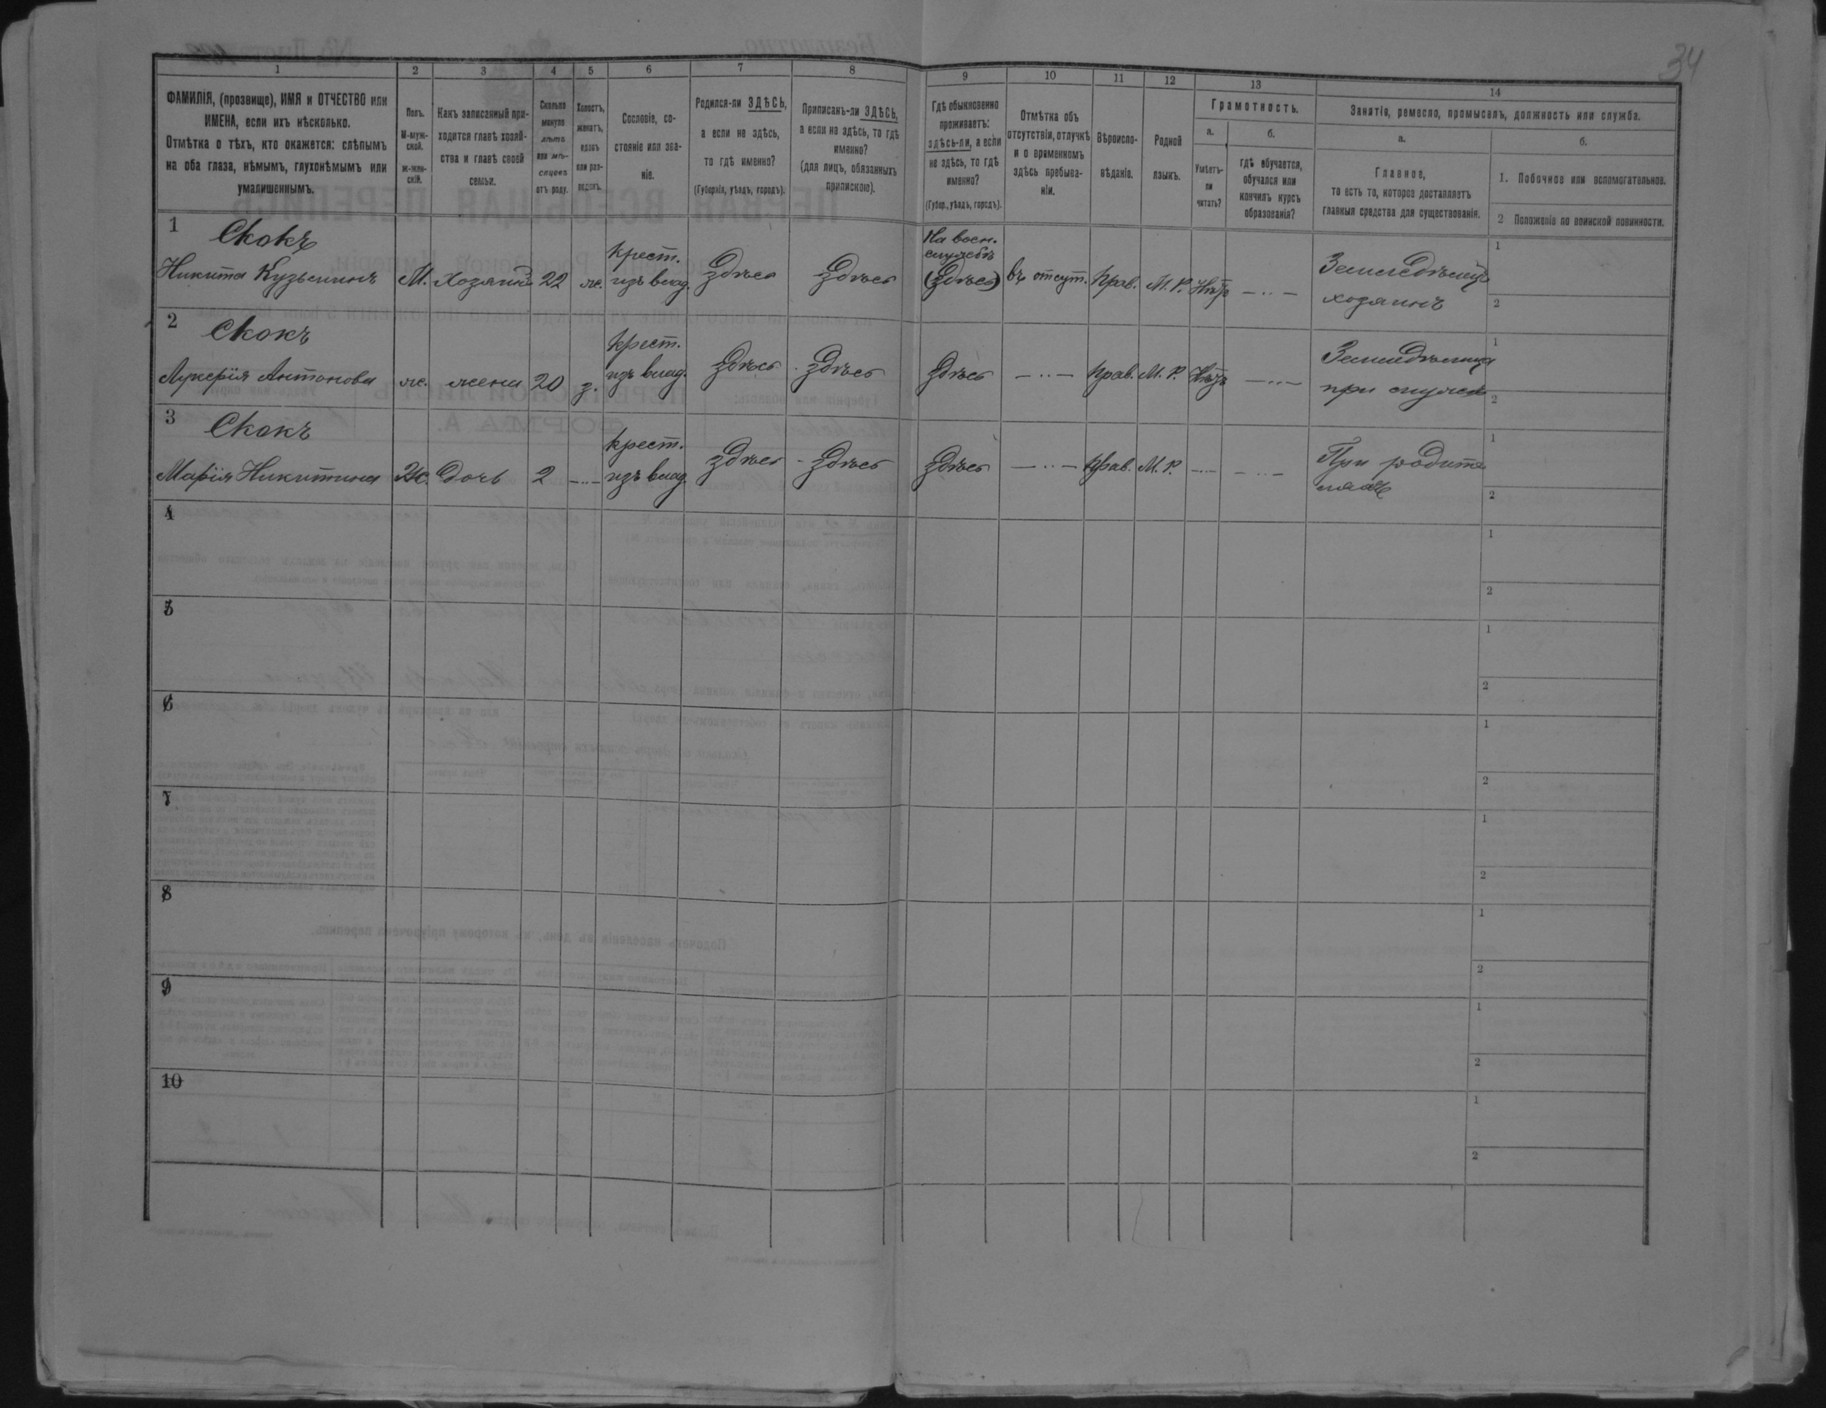 34
1 2 3 4 5 6 7 8 9 10 11 12 13 14
ФАМИЛІЯ, (прозвище), ИМЯ и ОТЧЕСТВО или
ИМЕНА, если ихъ нѣсколько.
Отмѣтка о тѣхъ, кто окажется: слѣпымъ
на оба глаза, нѣмымъ, глухонѣмымъ или
умалишеннымъ.
Полъ.
М-муж-
ской.
ж-жен-
скій.
Какъ записанный при-
ходится главѣ хозяй-
ства и главѣ своей
семьи.
Сколько
минуло
лѣтъ
или мѣ-
сяцевъ
отъ роду.
Холостъ,
женатъ,
вдовъ
или раз-
веденъ.
Сословіе, со-
стояніе или зва-
ніе.
Родился-ли ЗДѢСЬ,
а если не здѣсь,
то гдѣ именно?
(Губернія, уѣздъ, городъ).
Приписанъ-ли ЗДѢСЬ,
а если не здѣсь, то гдѣ
именно?
(для лицъ, обязанныхъ
припискою).
Гдѣ обыкновенно
проживаетъ:
здѣсь-ли, а если
не здѣсь, то гдѣ
именно?
(Губер., уѣздъ, городъ).
Отмѣтка объ
отсутствіи, отлучкѣ
и о временномъ
здѣсь пребыва-
ніи.
Вѣроиспо-
вѣданіе.
Родной
языкъ.
Грамотность.
а.
Умѣетъ-
ли
читать?
б.
гдѣ обучается,
обучался или
кончилъ курсъ
образованія?
Занятіе, ремесло, промыселъ, должность или служба.
а.
Главное,
то есть то, которое доставляетъ
главныя средства для существованія.
б.
1. Побочное или вспомогательное.
2 Положеніе по воинской повинности.
1
Скокъ
Никита Кузьминъ
М.
Хозяинъ
22
ж.
крест.
изъ влад.
Здѣсь
Здѣсь
На воен.
службѣ
(Здѣсь)
въ отсут.
Прав.
М. Р.
Нѣтъ
Земледѣлецъ
хозяинъ
1
2
2
Скокъ
Лукерія Антонова
ж.
жена
20
з.
крест.
изъ влад.
Здѣсь
Здѣсь
Здѣсь
Прав.
М. Р.
Нѣтъ
при
1
2
3
Скокъ
Марія Никитина
Ж.
Дочь
2
крест.
изъ влад.
Здѣсь
Здѣсь
Здѣсь
Прав.
М. Р.
При родите
ляхъ
1
2
4
1
2
5
1
2
6
1
2
7
1
2
8
1
2
9
1
2
10
1
2